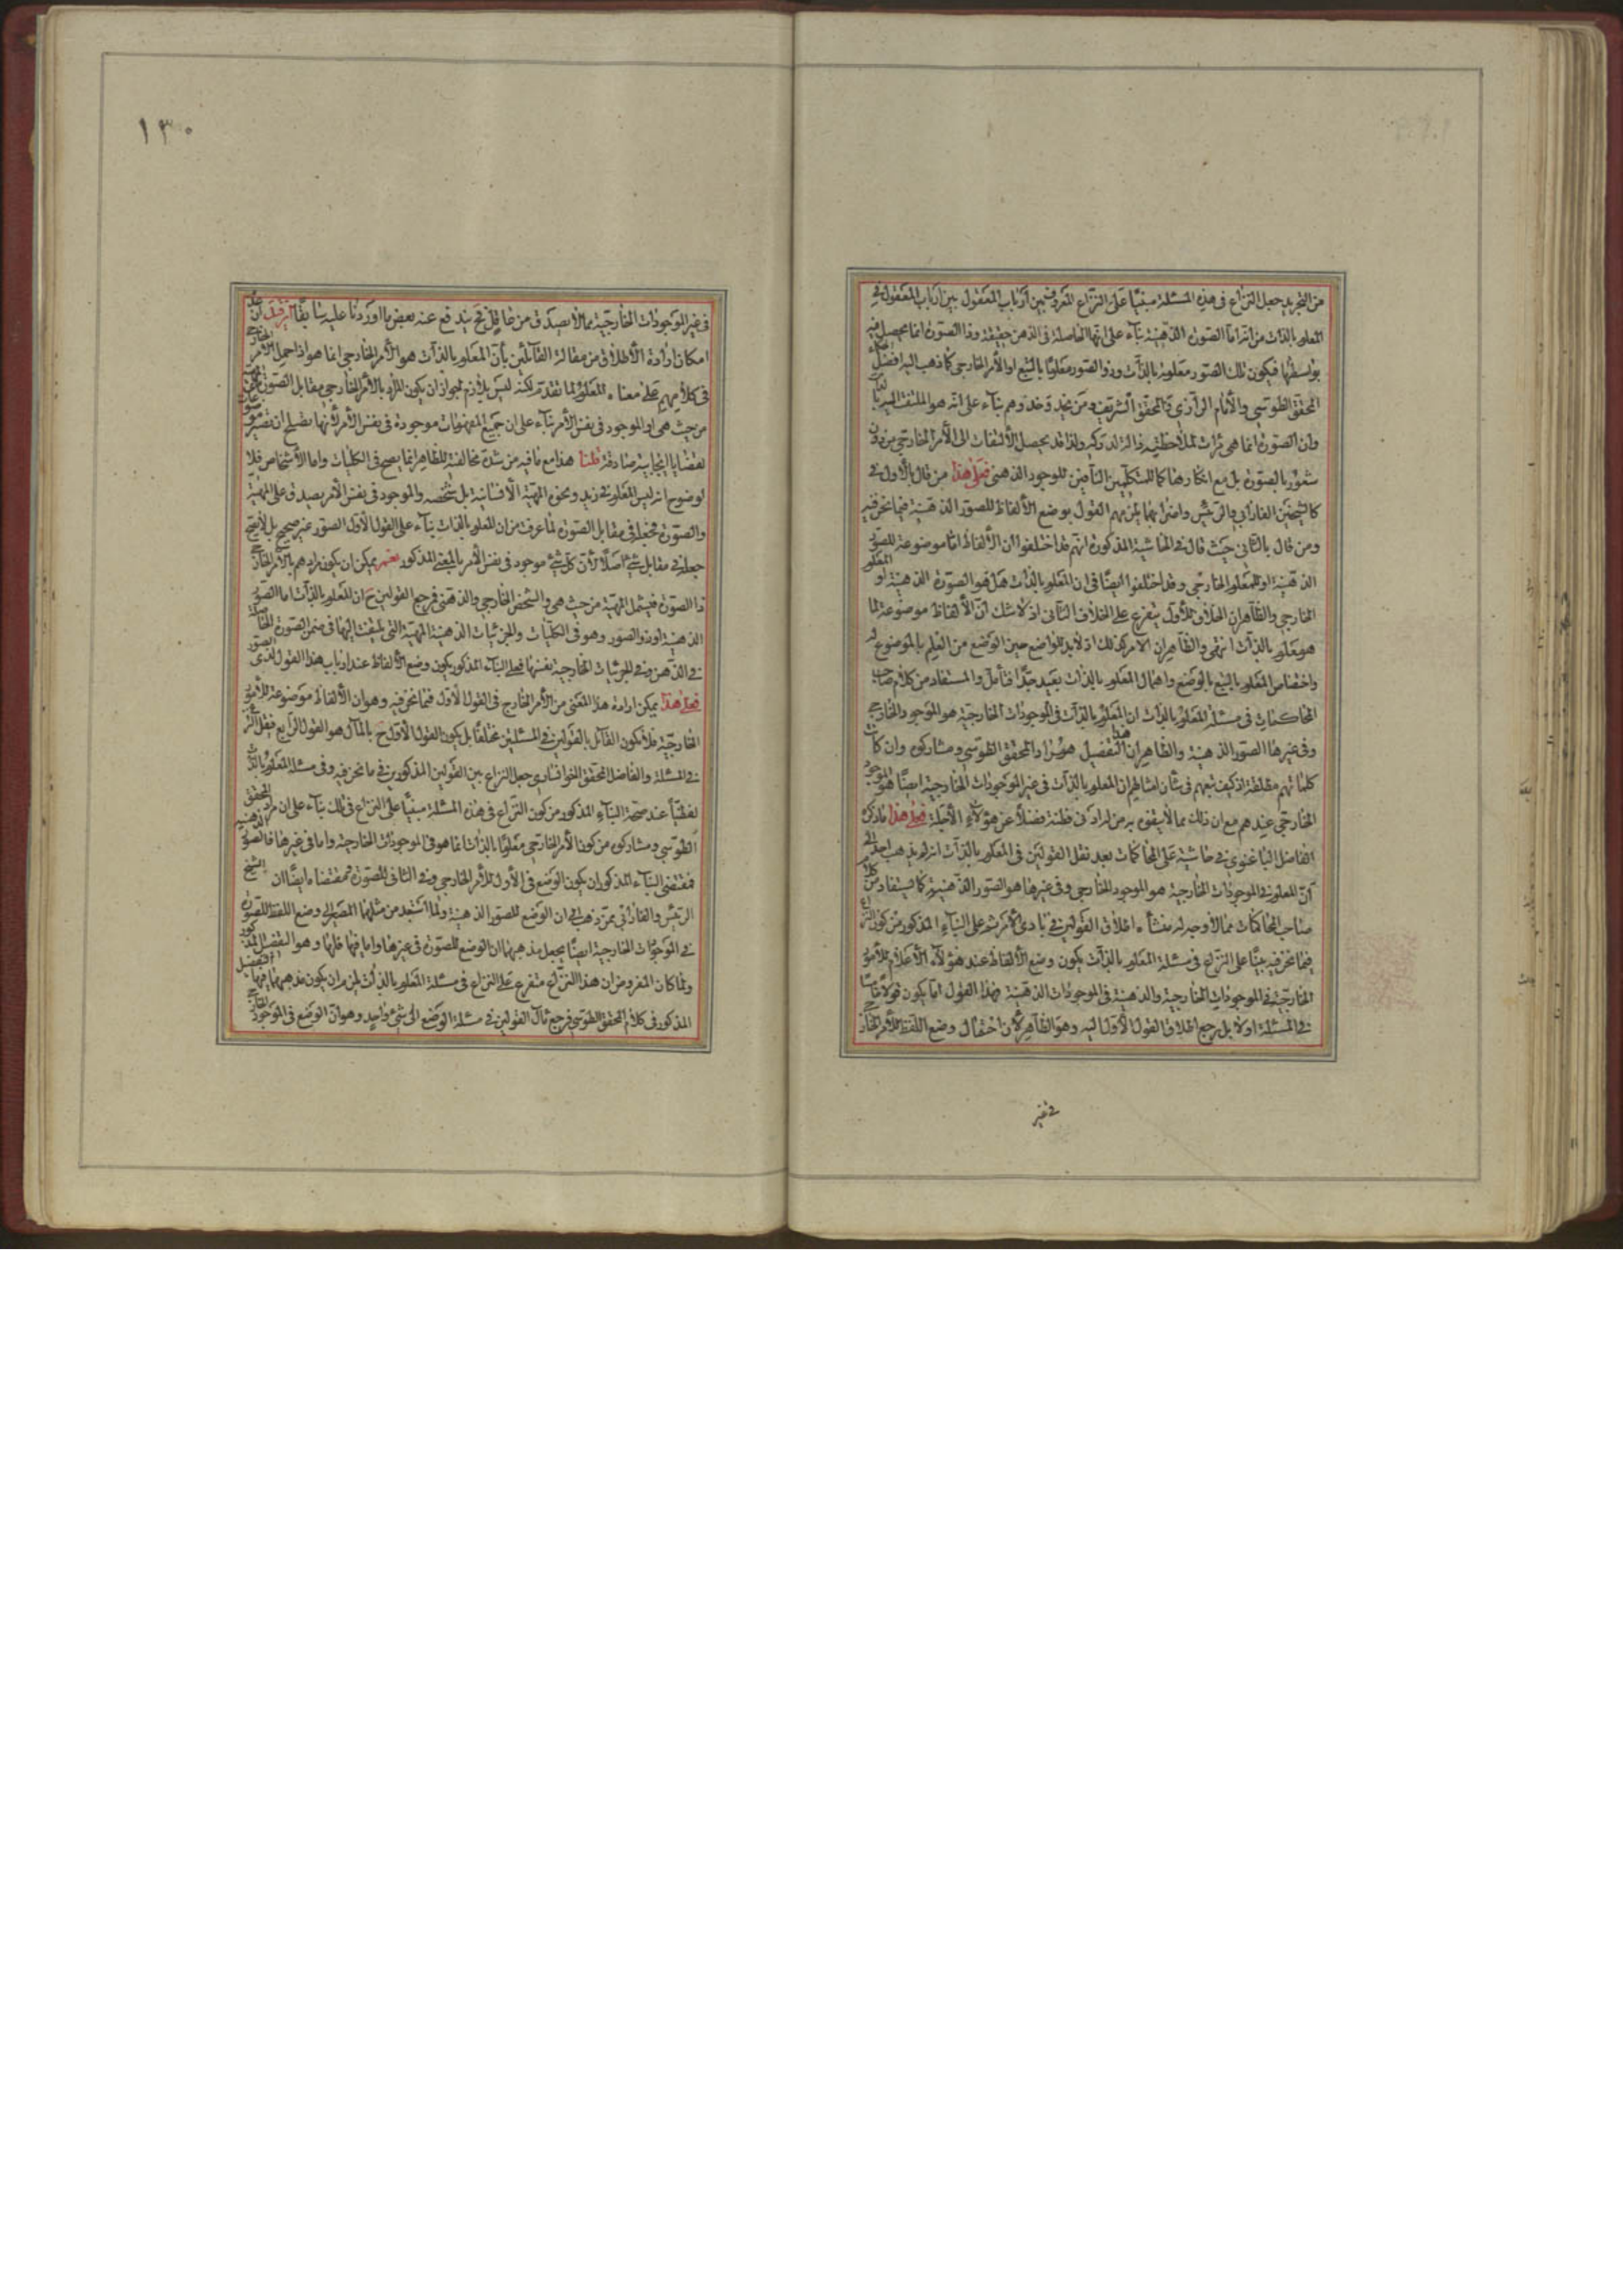 من التجريد جعل النزاع فى هذه المسئلة مبنيّا على النزاع المعروف بين ارباب المعقول فى
المعلوم بالذات من انه امّا الصّورة الذهنية بناء على انها الحاصلة فى الذهن حقيقة وذا الصورة انما يحصل فيه
بواسطتها فيكون تلك الصور معلومة بالذّات وذو الصّور معلومًا بالتبع او الأمر الخارجى كما ذهب اليه افضل
المحقق الطّوسى والأمام الرّازى والمحقق الشريف ومن يحذو حذوهم بناء على انه هو الملتفت اليه بالذات
وان الصورة انما هى مرآت لملاحظته ولذا قد يحصل الألتفات الى الأمر الخارجى من دون
شعور بالصّورة بل مع انكارها كما للمتكلّمين النّافين للوجود الذهنى فعلى هذا من قال بالأول
كالشيخين الفارابى والرّئيس واضرابهما يلزمهم القول بوضع الألفاظ للصور الذهنية فيما نحن فيه
ومن قال بالثّانى حيث قال فى الحاشية المذكورة انهم قد اختلفوا ان الألفاظ امّا موضوعة للصور
الذهنية او للمعلوم الخارجى وقد اختلفوا ايضًا فى ان المعلوم بالذّات هل هو الصورة الذهنية او المعلوم
الخارجى والظّاهر ان الخلاف الأول يتفرع على الخلاف الثّانى اذ لا شك انّ الألفاظ موضوعة لما
هو معلوم بالذّات انتهى والظّاهر ان الأمر كذلك اذ لا بد للواضع حين الوضع من العلم بالموضوع له
واختصاص المعلوم بالتبع بالوضع واهمال المعلوم بالذات بعيد جدّا فتأمل والمستفاد من كلام صاحب
المحاكمات فى مسئلة المعلوم بالذات ان المعلوم بالذّات فى الموجودات الخارجية هو الموجود الخارجى
وفى غيرها الصّور الذهنية والظاهر ان هذا التفصيل هو مراد المحقق الطّوسى ومشاركوه وان كانت
كلماتهم مطلقة اذ كيف يتوهم فى شان امثالهم ان المعلوم بالذّات فى غير الموجودات الخارجية ايضًا هو الموجود
الخارجى عندهم مع ان ذلك مما لا يتفوه به من له ادنى فطنة فضلاً عن هؤلاء الأجلّة فعلى هذا ما ذكره
الفاضل الباغنوى فى حاشية على المحاكمات بعد نقل القولين فى المعلوم بالذّات انه لم يذهب احد الى
انّ المعلوم فى الموجودات الخارجية هو الموجود الخارجى وفى غيرها هو الصّور الذّهنية كما يستفاد من كلام
صاحب المحاكمات مما لا وجه له منشأه اطلاق القولين فى بادى الأمر ثم على البناء المذكور من كون النزاع
فيما نحن فيه مبنيّا على النزاع فى مسئلة المعلوم بالذّات يكون وضع الألفاظ عند هؤلاء الأعلام للأمور
الخارجيّة فى الموجودات الخارجية والذهنية فى الموجودات الذهنية فهذا القول امّا يكون قولاً خامسًا
فى المسئلة اولا بل يرجع اطلاق القول الأول اليه وهو الظّاهر لأن احتمال وضع اللفظ للأمر الخارجى
فى غير
١٣٠
فى غير الموجودات الخارجيّة مما لا يصدق من عاقل فح يندفع عنه بعض ما اوردنا عليه سابقًا فان قيل ان
امكان ارادة الأطلاق من مقالة القائلين بأنّ المعلوم بالذّات هو الأمر الخارجى انما هو اذا حمل الأمر الخارجى
فى كلامهم على معناه المعلوم لما تقدّم لكنه ليس بلازم لجواز ان يكون المراد بالأمر الخارجى مقابل الصورة
من حيث هى او الموجود فى نفس الأمر بناء على ان جميع المفهومات موجودة فى نفس الأمر لأنها تصلح ان تصير موضوعات
لقضايا ايجابية صادقة قلنا هذا مع ما فيه من شدة مخالفته للظاهر انما يصح فى الكليات واما الأشخاص فلا
لوضوح انه ليس المعلوم فى زيد ونحوه المهيّة الأنسانية بل تشخصه والموجود فى نفس الأمر يصدق على المهيّة
والصورة فجعله فى مقابل الصّورة لما عرفت من ان المعلوم بالذات بناء على القول الأول الصّور غير صحيح بل لا يصح
جعله فى مقابل شئ اصلاً لأن كل شئ موجود فى نفس الأمر بالمعنى المذكور نعم يمكن ان يكون مرادهم بالأمر الخارجى
ذا الصورة فيشمل المهيّة من حيث هى والشخص الخارجى والذهنى فمرجع القولين ح ان المعلوم بالذّات اما الصّور
الذهنية او ذو الصّور وهو فى الكلّيات والجزئيات الذهنية المهيّة التى يلتفت اليها فى ضمن الصورة الحاصلة
فى الذّهن وفى الجزئيات الخارجية نفسها فعلى البناء المذكور يكون وضع الألفاظ عند ارباب هذا القول لذى الصور
فعلى هذا يمكن ارادة هذا المعنى من الأمر الخارج فى القول الأول فيما نحن فيه وهو ان الألفاظ موضوعة للأمور
الخارجيّة فلا يكون القائل بالقولين فى المسئلتين مختلفًا بل يكون القول الأول ح بالمآل هو القول الرابع
فى المسئلة والفاضل المحقق الخوانسارى جعل النزاع بين القولين المذكورين فى ما نحن فيه وفى مسئلة المعلوم بالذّات
لفظيّا عند صحّة البناء المذكور من كون النزاع فى هذه المسئلة مبنيّا على النزاع فى تلك بناء على ان مراد المحقق
الطّوسى ومشاركوه من كون الأمر الخارجى معلومًا بالذّات انما هو فى الموجودات الخارجية واما فى غيرها فالصّور الذهنية
فمقتضى البناء المذكور ان يكون الوضع فى الأول للأمر الخارجى وفى الثانى للصورة ومقتضاه ايضًا ان الشيخ
الرّئيس والفارابى ممن ذهب الى ان الوضع للصور الذهنية ولما استبعد من مثلهما المصير الى وضع اللفظ للصورة
فى الموجودات الخارجية ايضًا يجعل مذهبهما ان الوضع للصورة فى غيرها واما فيها فلها وهو التفصيل المذكور
ولما كان المفروض ان هذا النزاع متفرع على النزاع فى مسئلة المعلوم بالذات لزم ان يكون مذهبهما فيها التفصيل
المذكور فى كلام المحقق الطّوسى فرجع مآل القولين فى مسئلة الوضع الى شئ واحد وهو انّ الوضع فى الموجود الخارجى